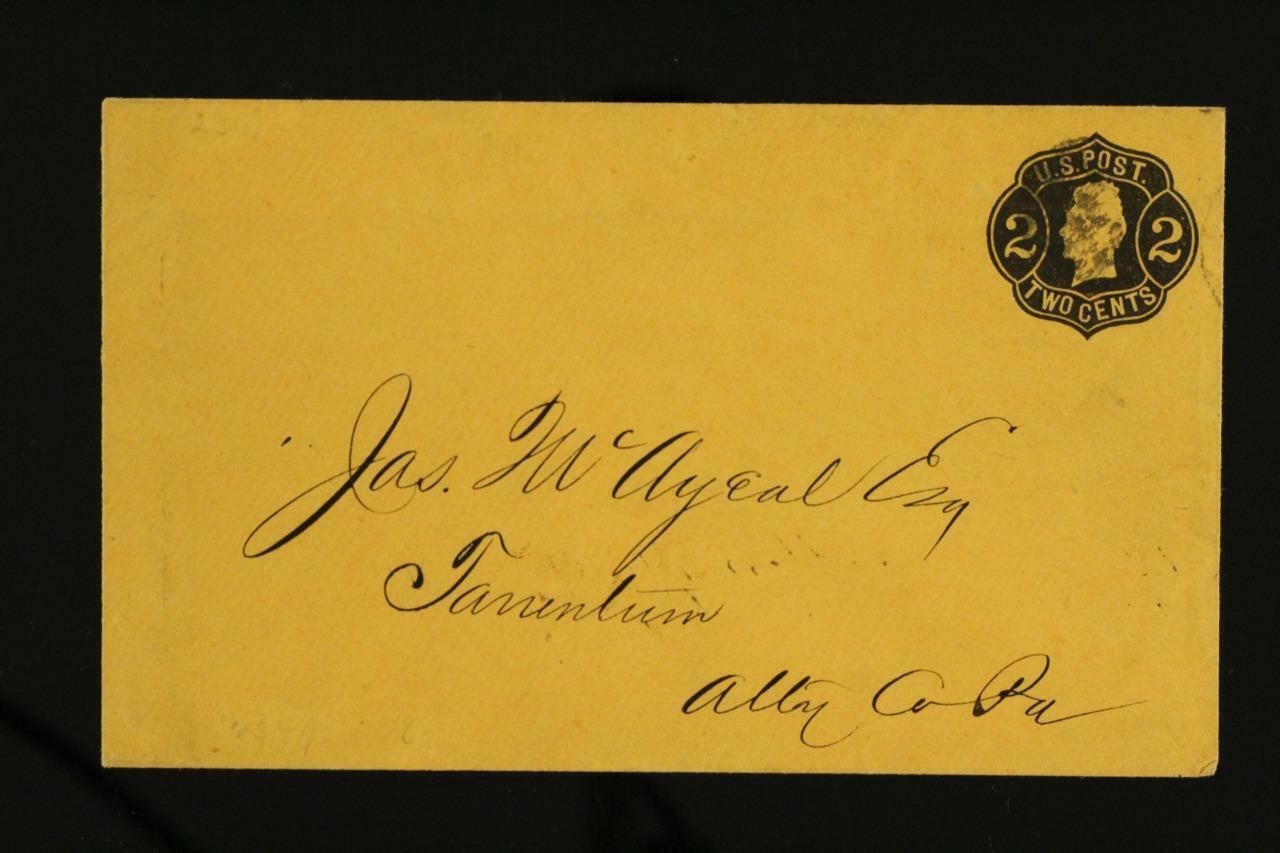 U.S. POST.
2 2
TWO CENTS
Jas. McAyeal Esq
Tarrentum
Alty Co Pa